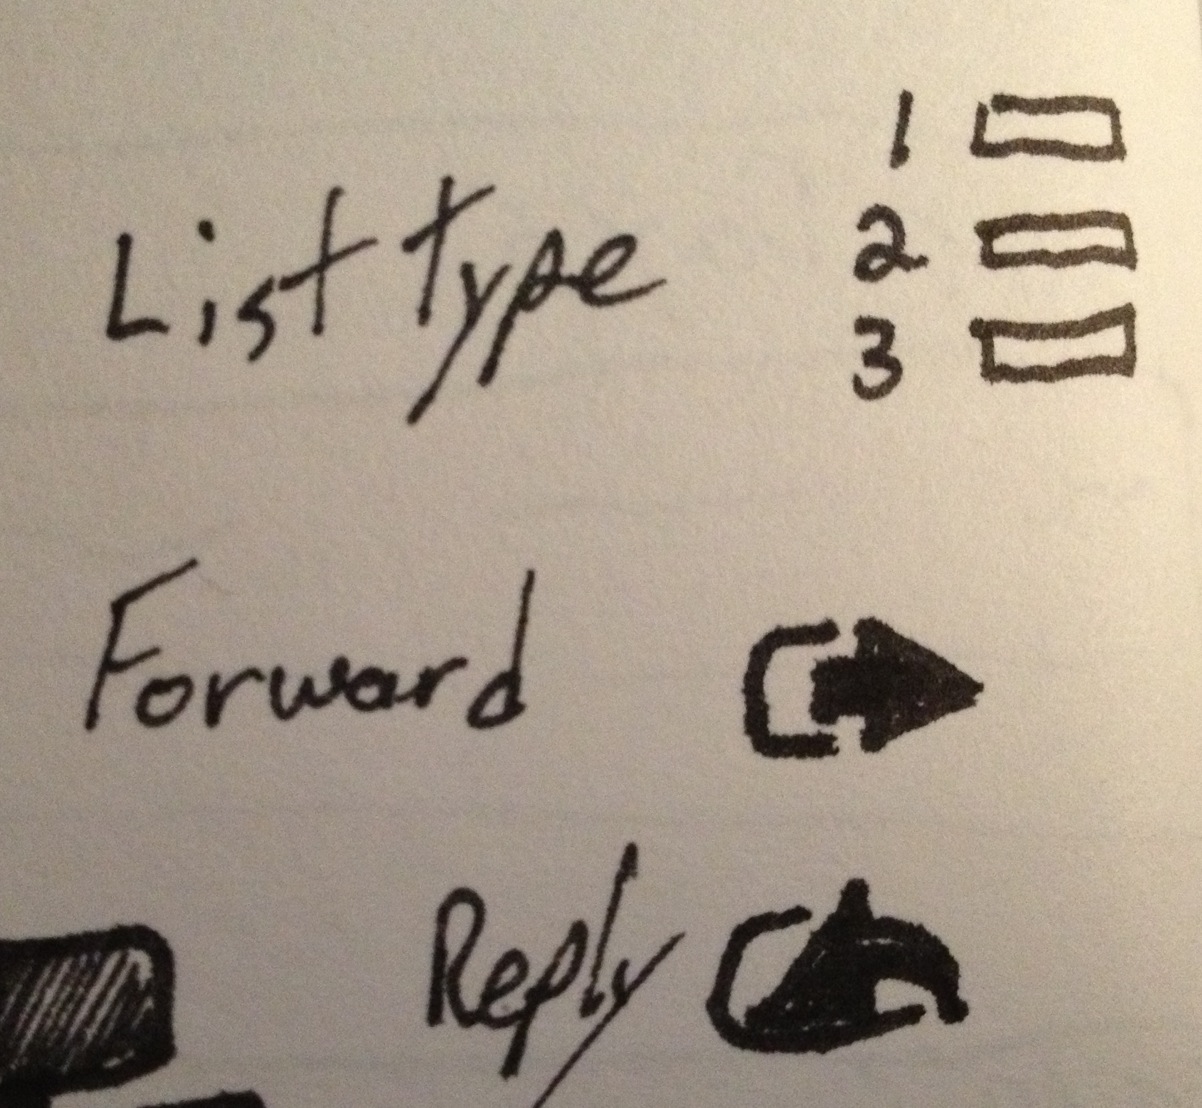 1
List type 2
3
Forward
Reply